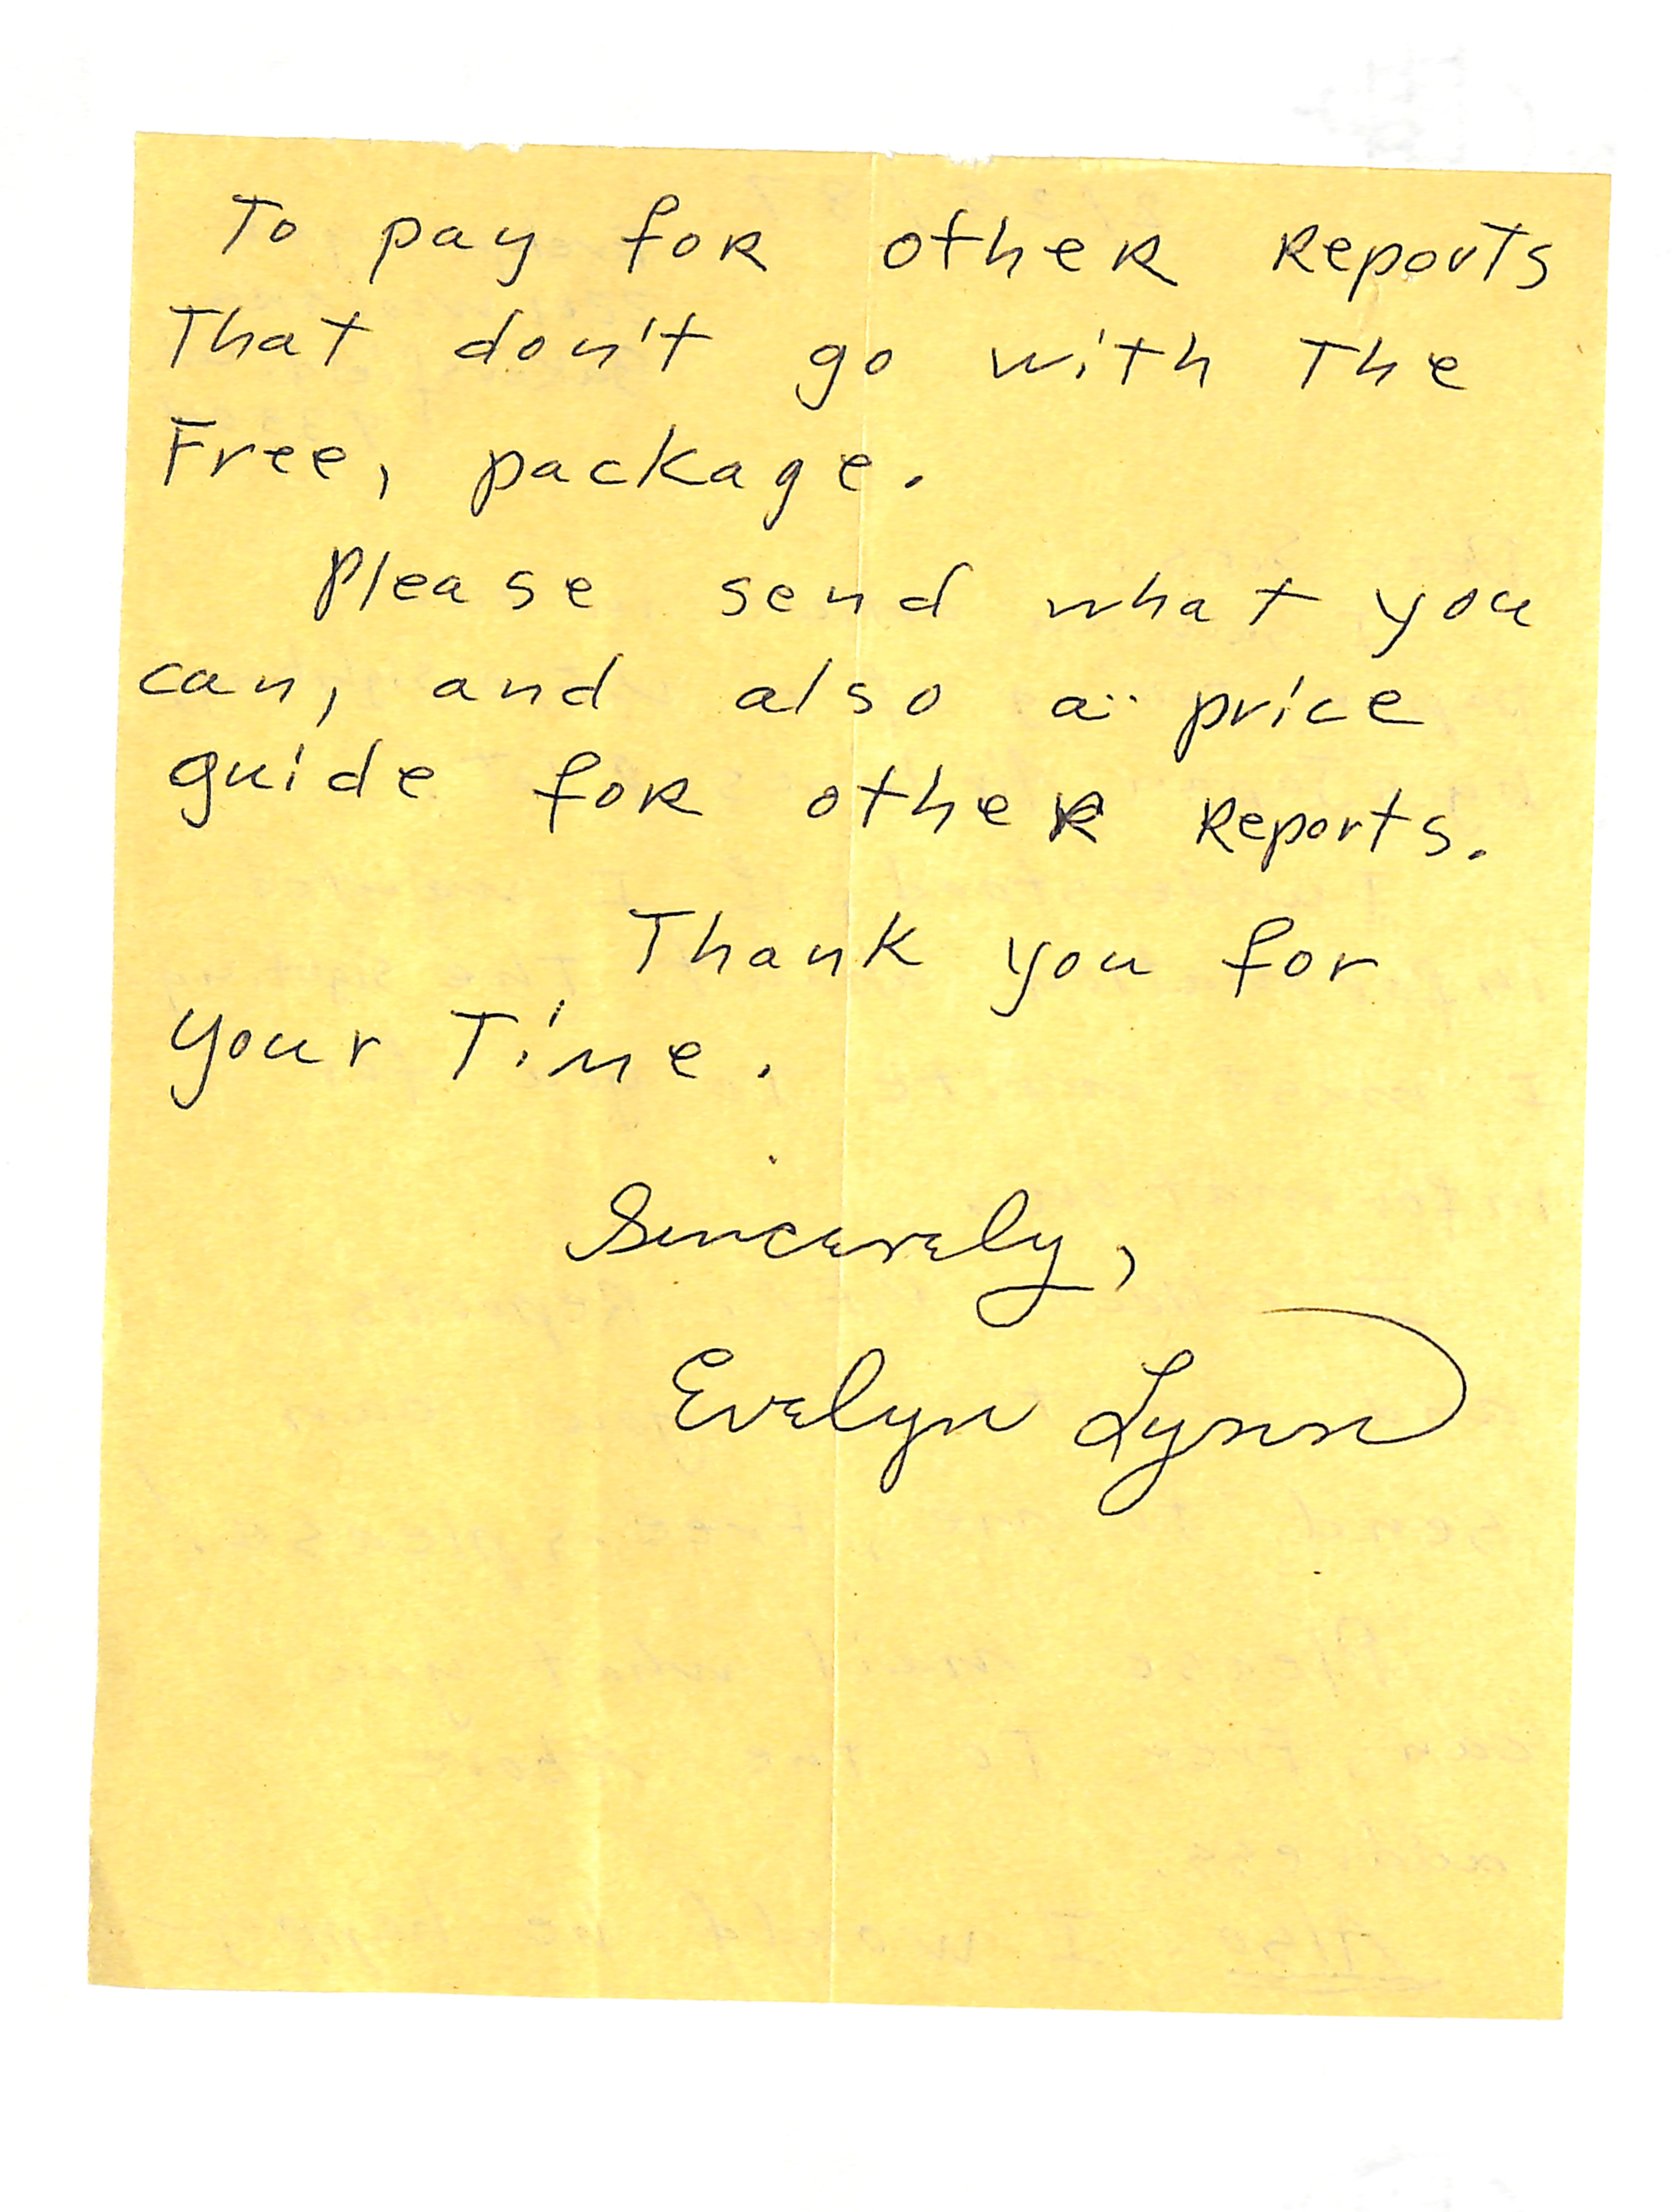 To pay for other Reports
That don't go with The
Free, package.
Please send what you
can, and also a price
guide for other Reports.
Thank you for
your Time.
Sincerely,
Evelyn Lynn